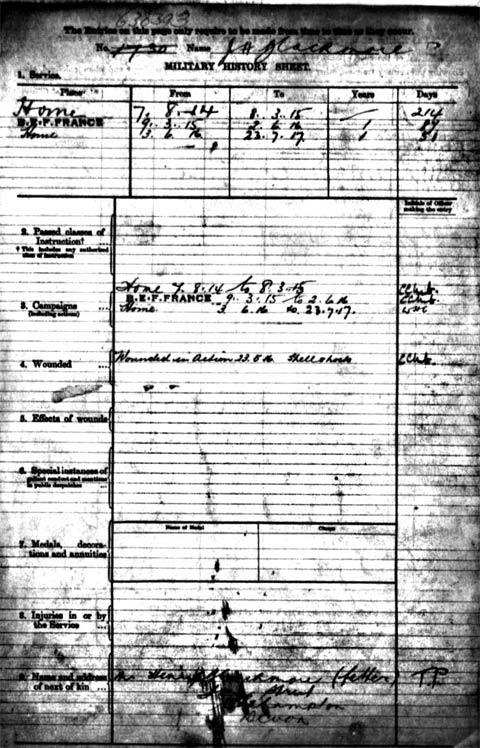 638393
The Entries on this page only require to be made from time to time as they occur.
No. 1730 Name J H Blackmore
MILITARY HISTORY SHEET.
1. Service.
Place From To Years Days
Home 7. 8. 14 8. 3. 15 — 214
B.E.F. FRANCE 9. 3. 15 2. 6. 16 1
Home 3. 6. 16 23. 7. 17. 1 51
Initials of Officer making the entry
2. Passed classes of Instruction† ...
† This includes any authorised class of instruction
Home 7. 8. 14 to 8. 3. 15
3. Campaigns ... B.E.F. FRANCE 9. 3. 15 to 2. 6. 16
(including actions) Home 3. 6. 16 to 23. 7. 17.
4. Wounded ... Wounded in Action 23. 5. 16 Shell shock
5. Effects of wounds
6. Special instances of gallant conduct and mentions in public despatches
Name of Medal
7. Medals, decorations and annuities
8. Injuries in or by the Service ...
9. Name and address of next of kin ... Henry Blackmore (father)
Street
Devon